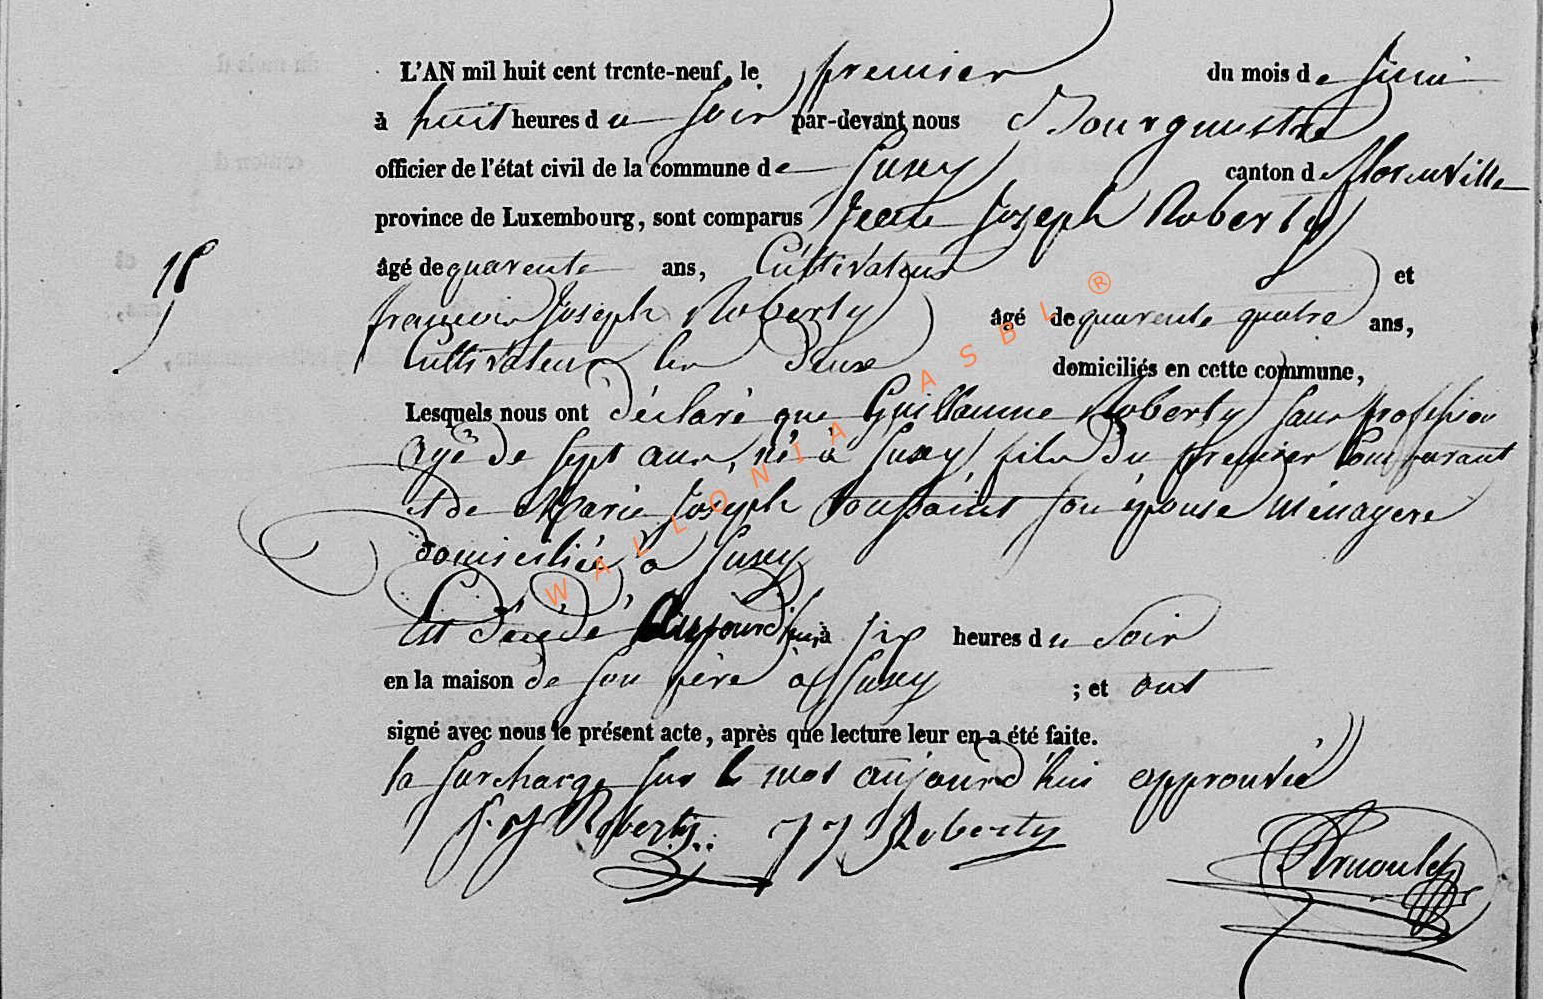 L'AN mil huit cent trente-neuf, le premier du mois de Juin
à huit heures du soir par-devant nous Bourgmestre
officier de l'état civil de la commune de Suxy canton de florenville
province de Luxembourg, sont comparus Jean Joseph Roberty
âgé de quarente ans, Cultivateur et
françois Joseph Roberty âgé de quarente quatre ans,
Cultivateur les deux domiciliés en cette commune,
Lesquels nous ont déclaré que Guillaume Roberty sans profession
agé de sept ans, né à Suxy, fils du premier Comparant
et de Marie Joseph Toussaint son épouse ménagere
domiciliée à Suxy
Est décédé aujourd'hui, à six heures du soir
en la maison de son père à Suxy ; et ont
signé avec nous le présent acte, après que lecture leur en a été faite.
la surcharge sur le mot aujourd'hui approuvée
f. J Roberty J J Roberty Arnould
WALLONIA ASBL ®